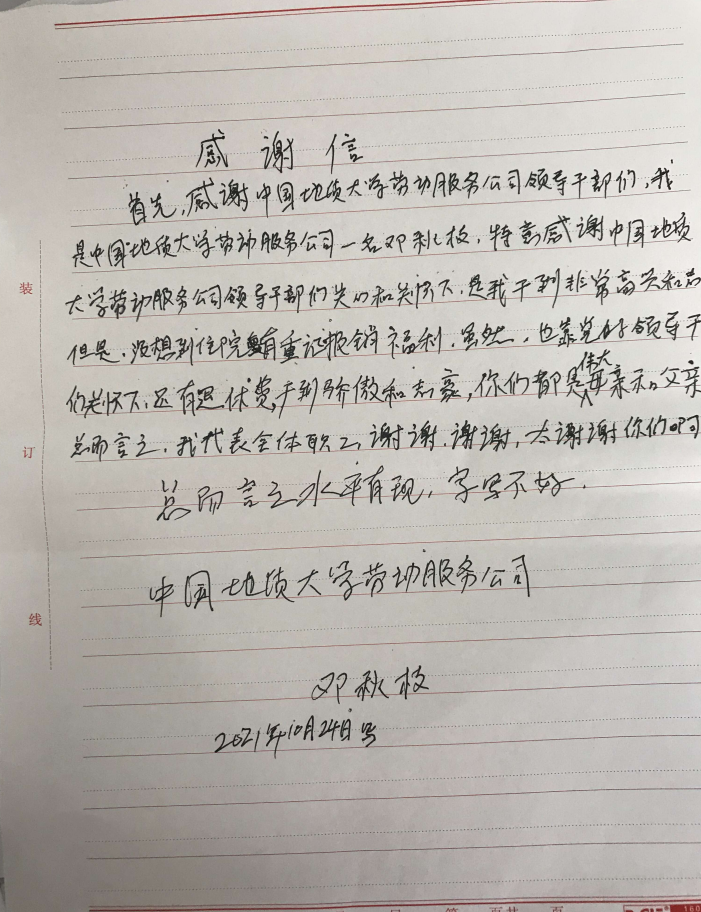 感谢信
首先,感谢中国地质大学劳动服务公司领导干部们,我
是中国地质大学劳动服务公司一名邓秋枝,特别感谢中国地质
大学劳动服务公司领导干部们关心和关怀下,是我干到非常高兴和
但是,没想到住院有重证报销福利,虽然,也靠党好领导干
们关怀下,还有退休费,干到骄傲和志豪,你们都是伟大母亲和父亲
总而言之,我代表全体职工,谢谢,谢谢,太谢谢你们
总而言之水平有现,字写不好.
中国地质大学劳动服务公司
邓秋枝
2021年10月24日号
装
订
线